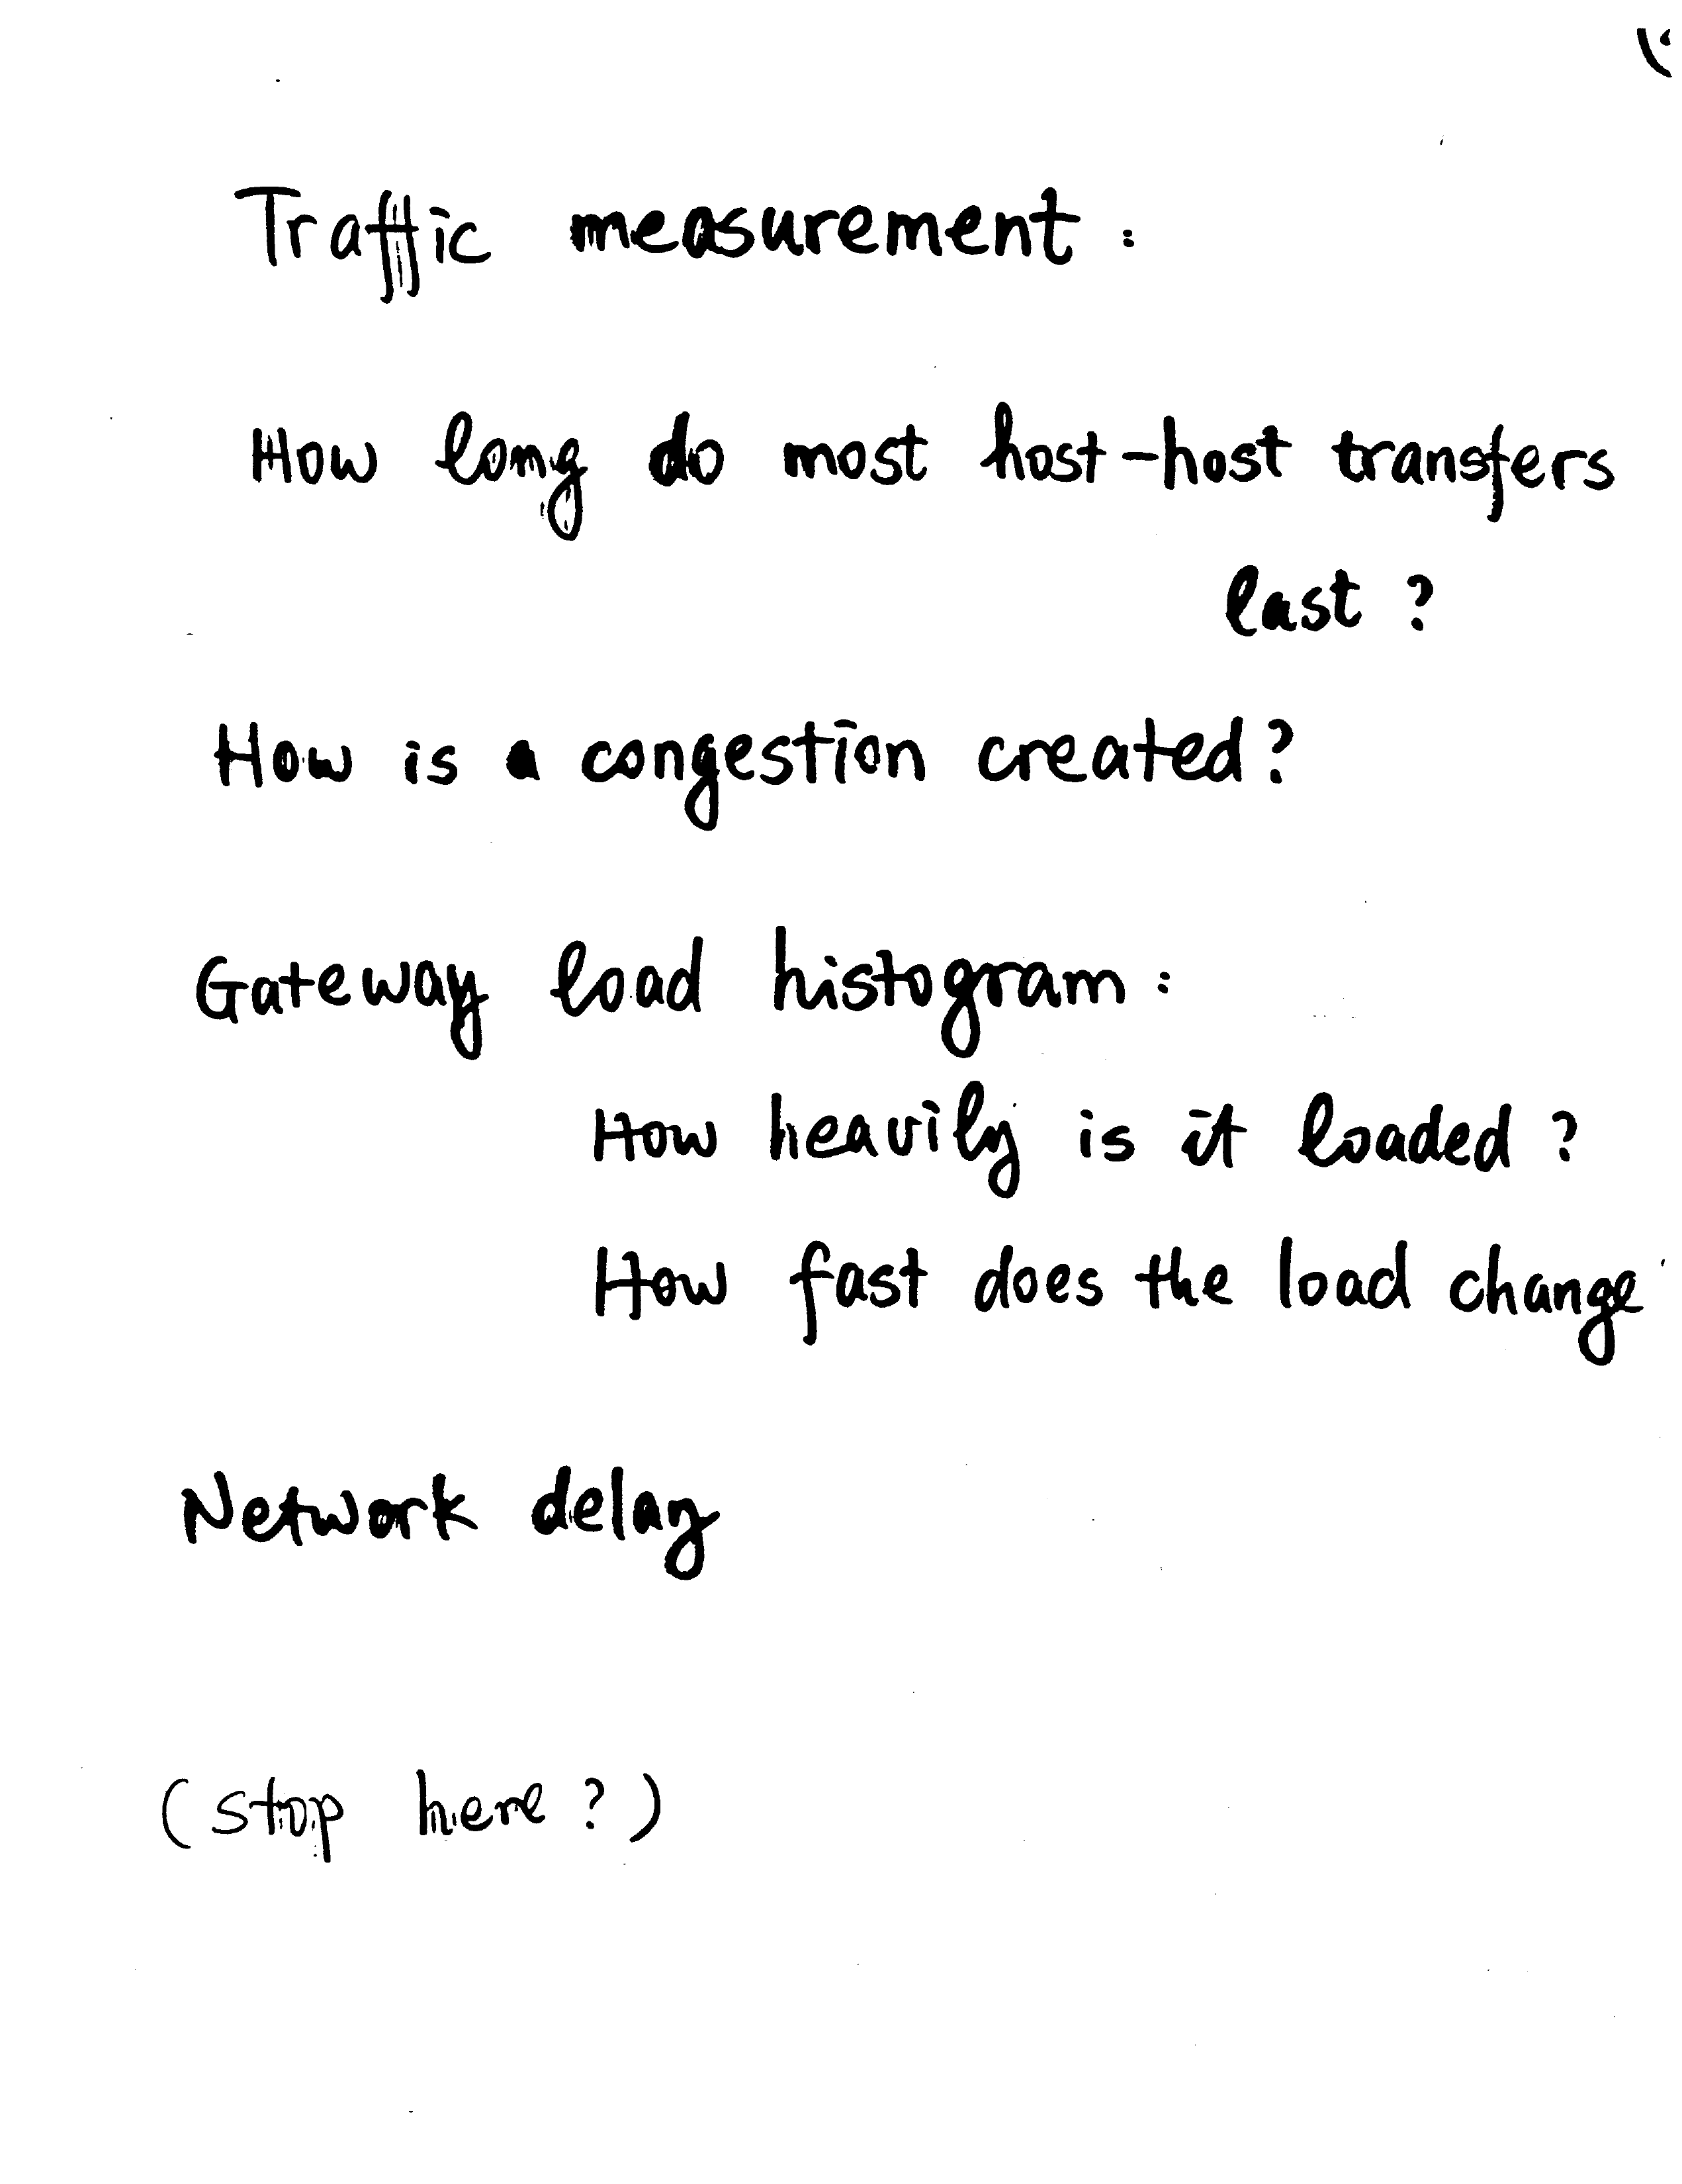 Traffic measurement :
How long do most host-host transfers
last ?
How is a congestion created?
Gateway load histogram :
How heavily is it loaded ?
How fast does the load change
Network delay
(stop here ?)